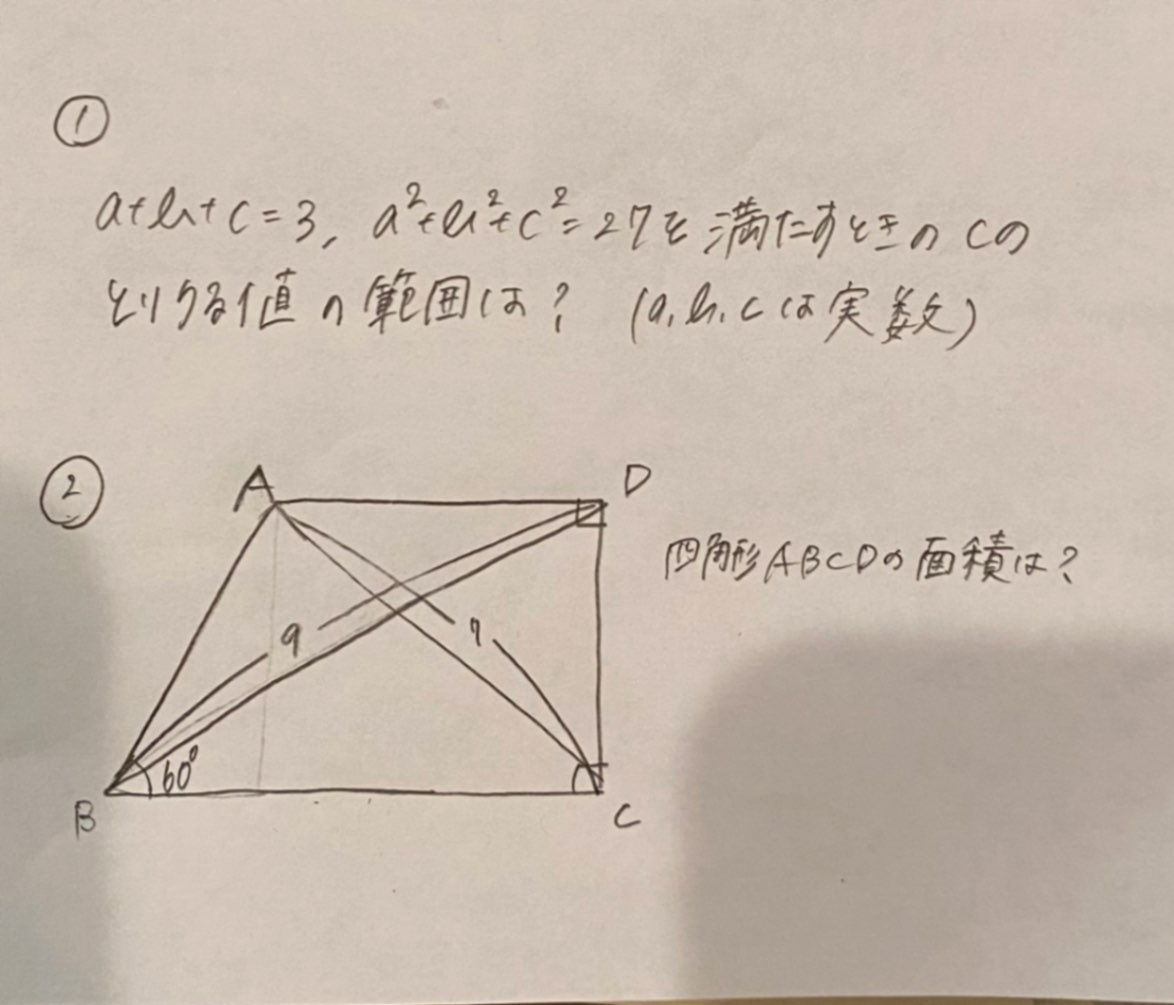 ①
a+b+c=3, a²+b²+c²=27を満たすときのcの
とりうる値の範囲は? (a,b,cは実数)
②
A
D
四角形ABCDの面積は?
9
7
60°
B
C